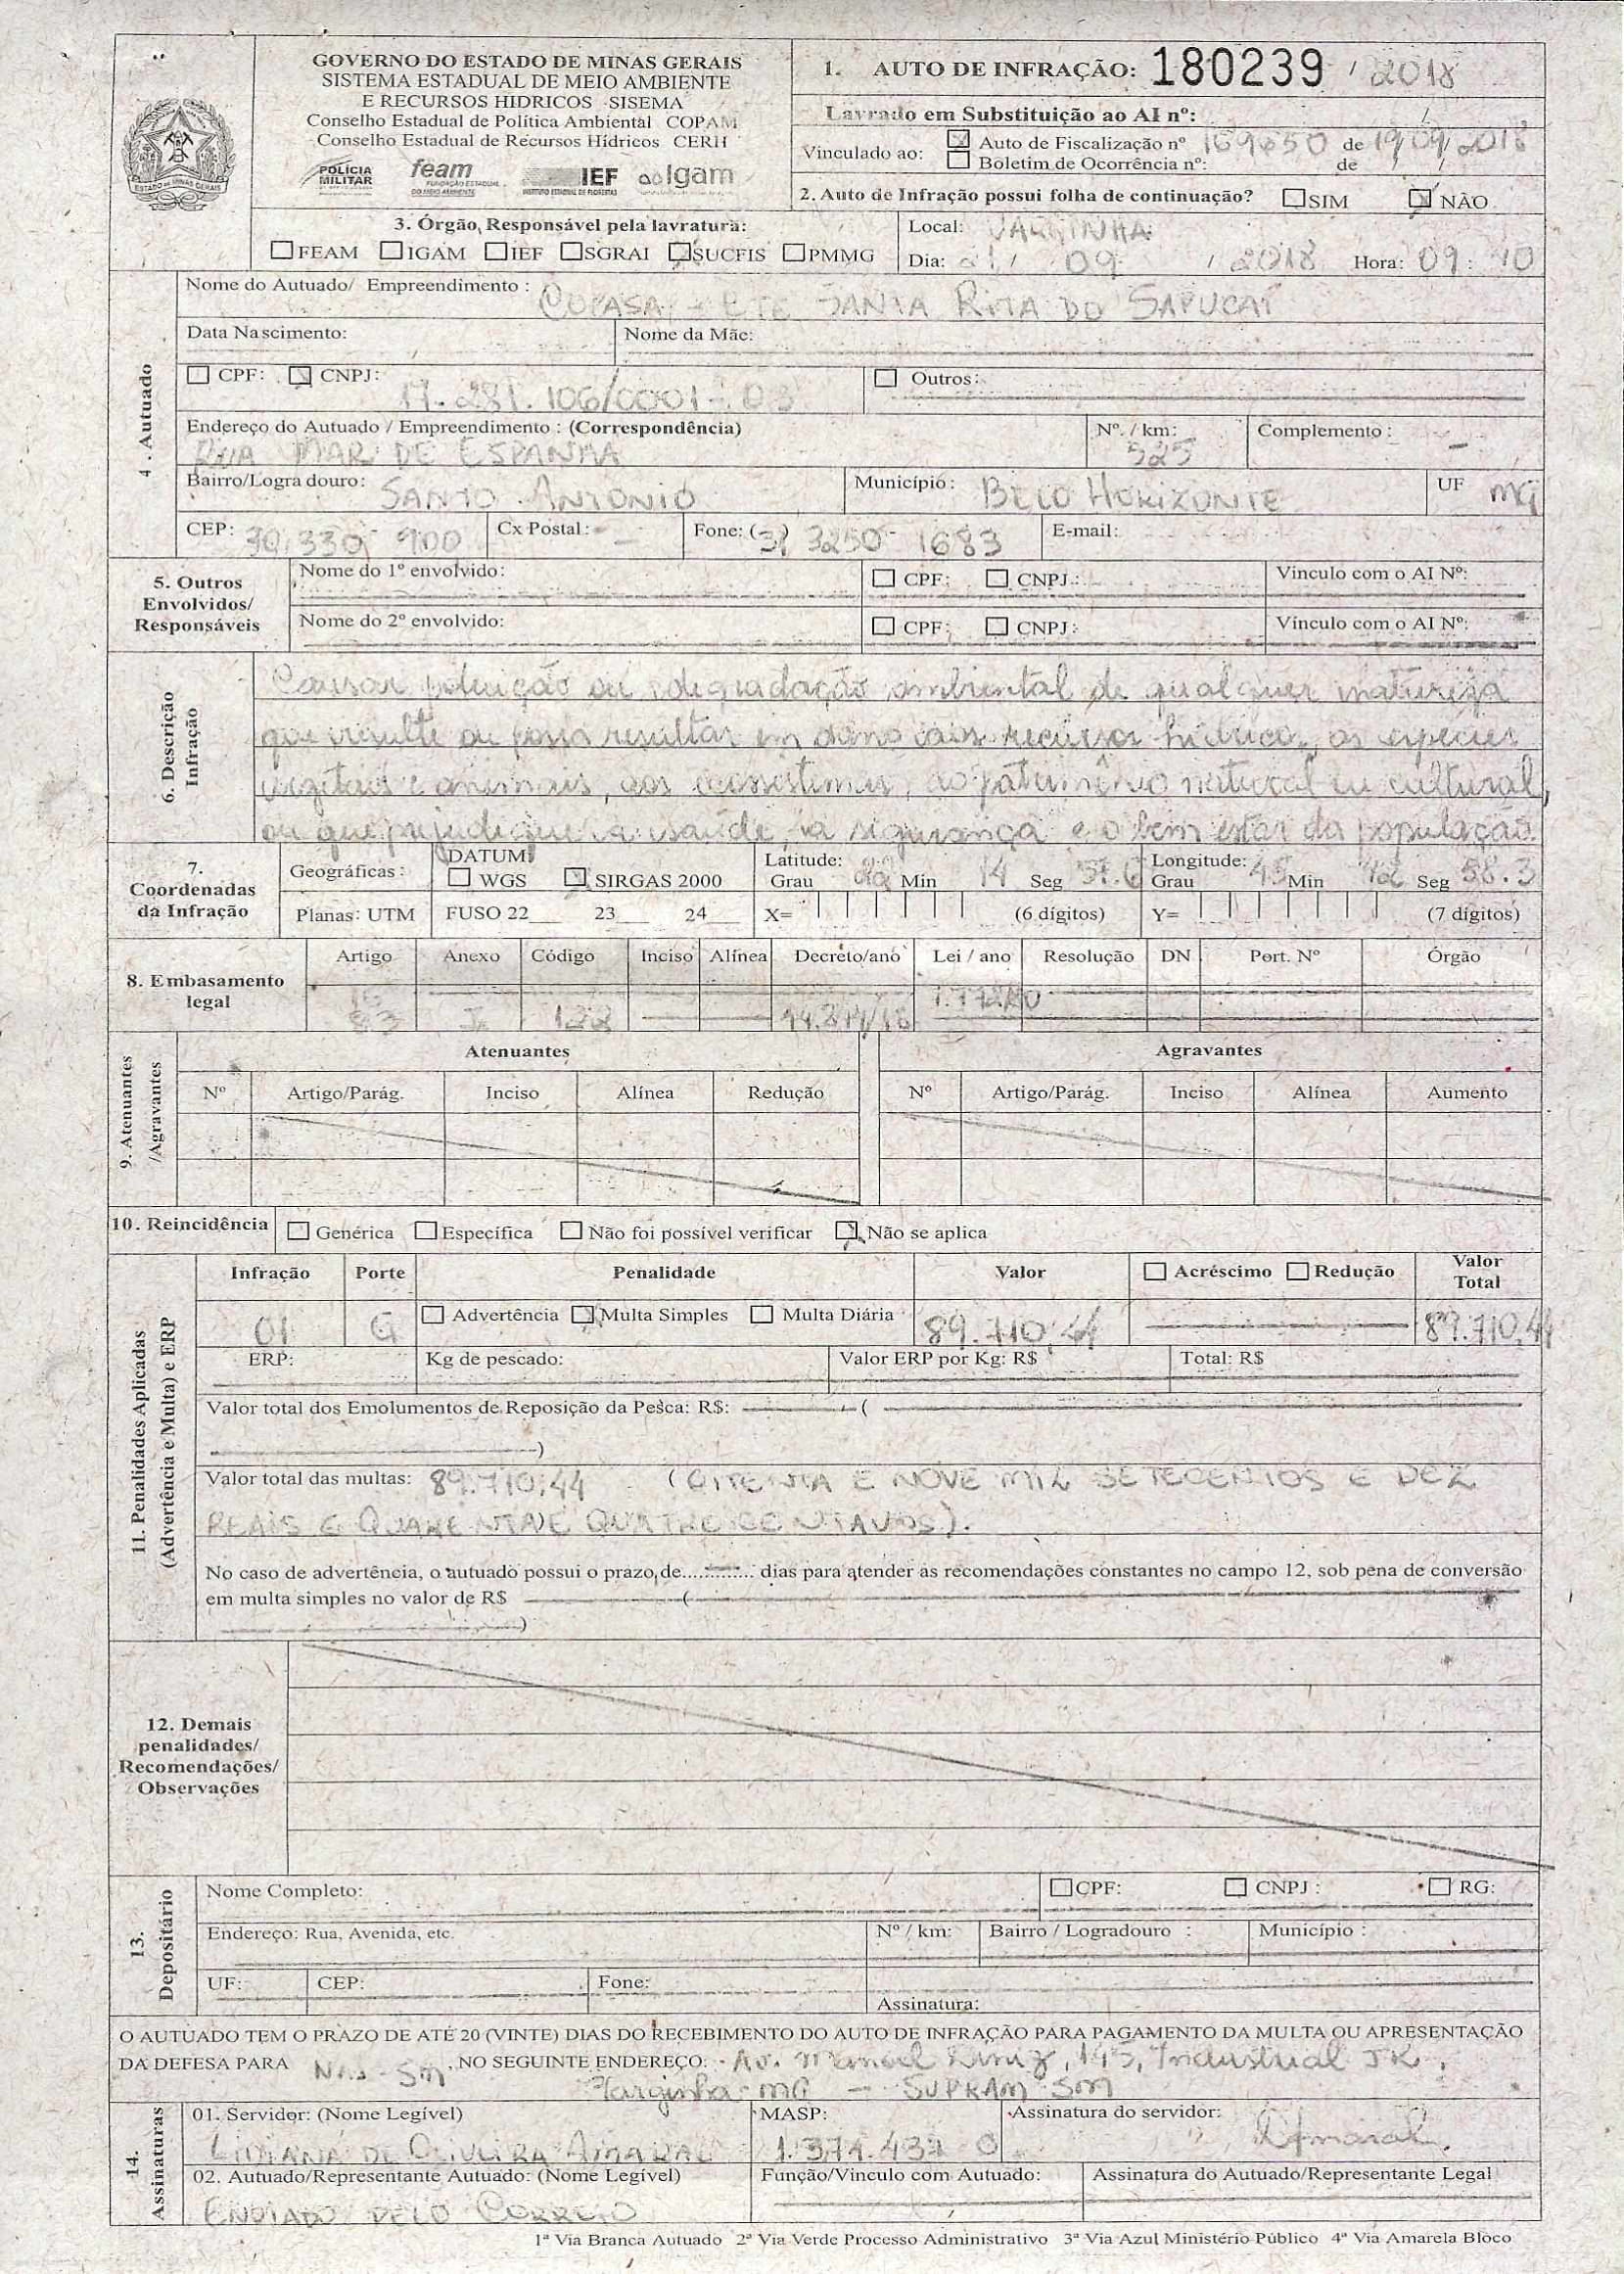 GOVERNO DO ESTADO DE MINAS GERAIS
SISTEMA ESTADUAL DE MEIO AMBIENTE
E RECURSOS HIDRICOS -SISEMA
Conselho Estadual de Política Ambiental COPAM
Conselho Estadual de Recursos Hídricos CERH
POLÍCIA MILITAR feam IEF Igam
FUNDAÇÃO ESTADUAL DO MEIO AMBIENTE INSTITUTO ESTADUAL DE FLORESTAS
1. AUTO DE INFRAÇÃO: 180239 / 2018
Lavrado em Substituição ao AI nº: /
Vinculado ao: Auto de Fiscalização nº de 19/09/2018
Boletim de Ocorrência nº: de / /
2. Auto de Infração possui folha de continuação? SIM NÃO
3. Órgão Responsável pela lavratura:
FEAM IGAM IEF SGRAI SUCFIS PMMG
Local: VARGINHA
Dia: 21 / 09 / 2018 Hora: 09: 10
4. Autuado
Nome do Autuado/ Empreendimento : COPASA - ETE SANTA RITA DO SAPUCAÍ
Data Nascimento: Nome da Mãe:
CPF: CNPJ: 17.281.106/0001-03 Outros:
Endereço do Autuado / Empreendimento : (Correspondência) Nº. / km: Complemento : -
RUA MAR DE ESPANHA 525
Bairro/Logradouro: SANTO ANTONIO Município: BELO HORIZONTE UF MG
CEP: 30.330-900 Cx Postal: - Fone: (31) 3250-1683 E-mail:
5. Outros Envolvidos/ Responsáveis
Nome do 1º envolvido: CPF: CNPJ: Vinculo com o AI Nº:
Nome do 2º envolvido: CPF: CNPJ: Vínculo com o AI Nº:
6. Descrição Infração
Causar poluição ou degradação ambiental de qualquer natureza
que resulte ou possa resultar em dano aos recursos hídricos, às espécies
vegetais e animais, aos ecossistemas, ao patrimônio natural ou cultural,
ou que prejudique a saúde, a segurança e o bem estar da população.
7. Coordenadas da Infração
Geográficas : DATUM: WGS SIRGAS 2000 Latitude: Grau 22 Min 14 Seg 57.6 Longitude: Grau 45 Min 42 Seg 58.3
Planas: UTM FUSO 22 23 24 X= (6 dígitos) Y= (7 dígitos)
8. Embasamento legal
Artigo Anexo Código Inciso Alínea Decreto/ano Lei / ano Resolução DN Port. Nº Órgão
83 I 122 44.844/18
9. Atenuantes /Agravantes
Atenuantes Agravantes
Nº Artigo/Parág. Inciso Alínea Redução Nº Artigo/Parág. Inciso Alínea Aumento
10. Reincidência Genérica Específica Não foi possível verificar Não se aplica
11. Penalidades Aplicadas (Advertência e Multa) e ERP
Infração Porte Penalidade Valor Acréscimo Redução Valor Total
01 G Advertência Multa Simples Multa Diária 89.710,44 89.710,44
ERP: Kg de pescado: Valor ERP por Kg: R$ Total: R$
Valor total dos Emolumentos de Reposição da Pesca: R$: (
)
Valor total das multas: 89.710,44 (OITENTA E NOVE MIL SETECENTOS E DEZ
REAIS E QUARENTA E QUATRO CENTAVOS).
No caso de advertência, o autuado possui o prazo de............ dias para atender as recomendações constantes no campo 12, sob pena de conversão
em multa simples no valor de R$ (
)
12. Demais penalidades/ Recomendações/ Observações
13. Depositário
Nome Completo: CPF: CNPJ : RG:
Endereço: Rua, Avenida, etc. Nº / km: Bairro / Logradouro : Município :
UF: CEP: Fone: Assinatura:
O AUTUADO TEM O PRAZO DE ATÉ 20 (VINTE) DIAS DO RECEBIMENTO DO AUTO DE INFRAÇÃO PARA PAGAMENTO DA MULTA OU APRESENTAÇÃO
DA DEFESA PARA NAI-SM , NO SEGUINTE ENDEREÇO: Av. Manoel Diniz, 145, Industrial JK,
Varginha-MG - SUPRAM SM
14. Assinaturas
01. Servidor: (Nome Legível) MASP: Assinatura do servidor:
LIDIANA DE OLIVEIRA AMARAL 1.374.437-0 Amaral
02. Autuado/Representante Autuado: (Nome Legível) Função/Vinculo com Autuado: Assinatura do Autuado/Representante Legal
ENVIADO PELO CORREIO
1ª Via Branca Autuado 2ª Via Verde Processo Administrativo 3ª Via Azul Ministério Público 4ª Via Amarela Bloco